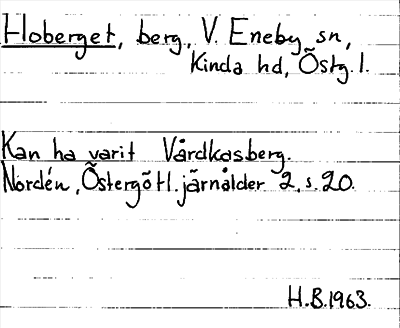 Hoberget, berg, V. Eneby sn,
Kinda hd, Östg. l.
Kan ha varit Vårdkasberg.
Nordén, Östergötl. järnålder 2, s. 20.
H.B.1963.